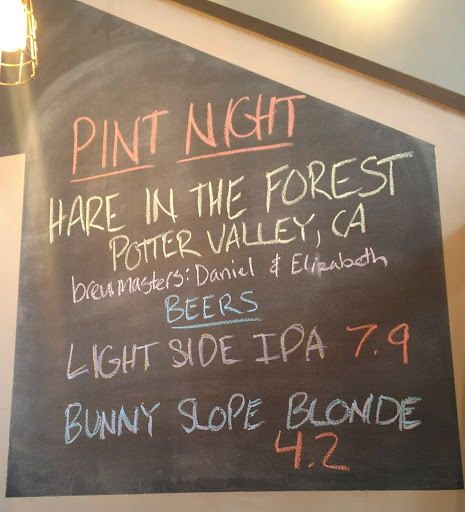 PINT NIGHT
HARE IN THE FOREST
POTTER VALLEY, CA
brewmasters: Daniel & Elizabeth
BEERS
LIGHT SIDE IPA 7.9
BUNNY SLOPE BLONDE
4.2